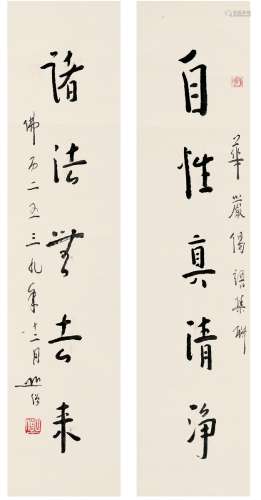 自性真清淨
華嚴偈語集聯
諸法無去来
佛历二五三九年十二月